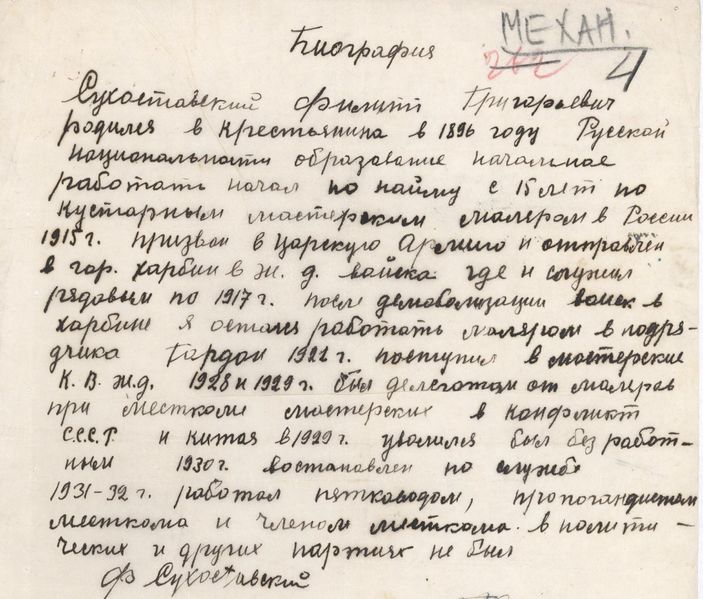 МЕХАН.
Биография
262 4
Сухоставский Филипп Григарьевич
родился в крестьянина в 1896 году Русской
национальности образование начальное
работать начал по найму с 15 лет по
кустарным мастерским маляром в России
1915 г. призван в царскую Армию и отправлен
в гор. Харбин в ж. д. вайска где и служил
рядовым по 1917 г. после демобализации войск в
харбине я остался работать маляром в подря-
дчика Гордон 1921 г. поступил в мастерские
К. В. ж.д. 1928 и 1929 г. был делегатом от маляров
при месткоме мастерских в конфликт
С.С.С.Р. и Китая в 1929 г. уволился был без работ-
ным 1930 г. востановлен по службе
1931-92 г. работал пятководом, пропогандистом
месткома и членом месткома. в полити-
ческих и других партиях не был
Ф Сухоставский